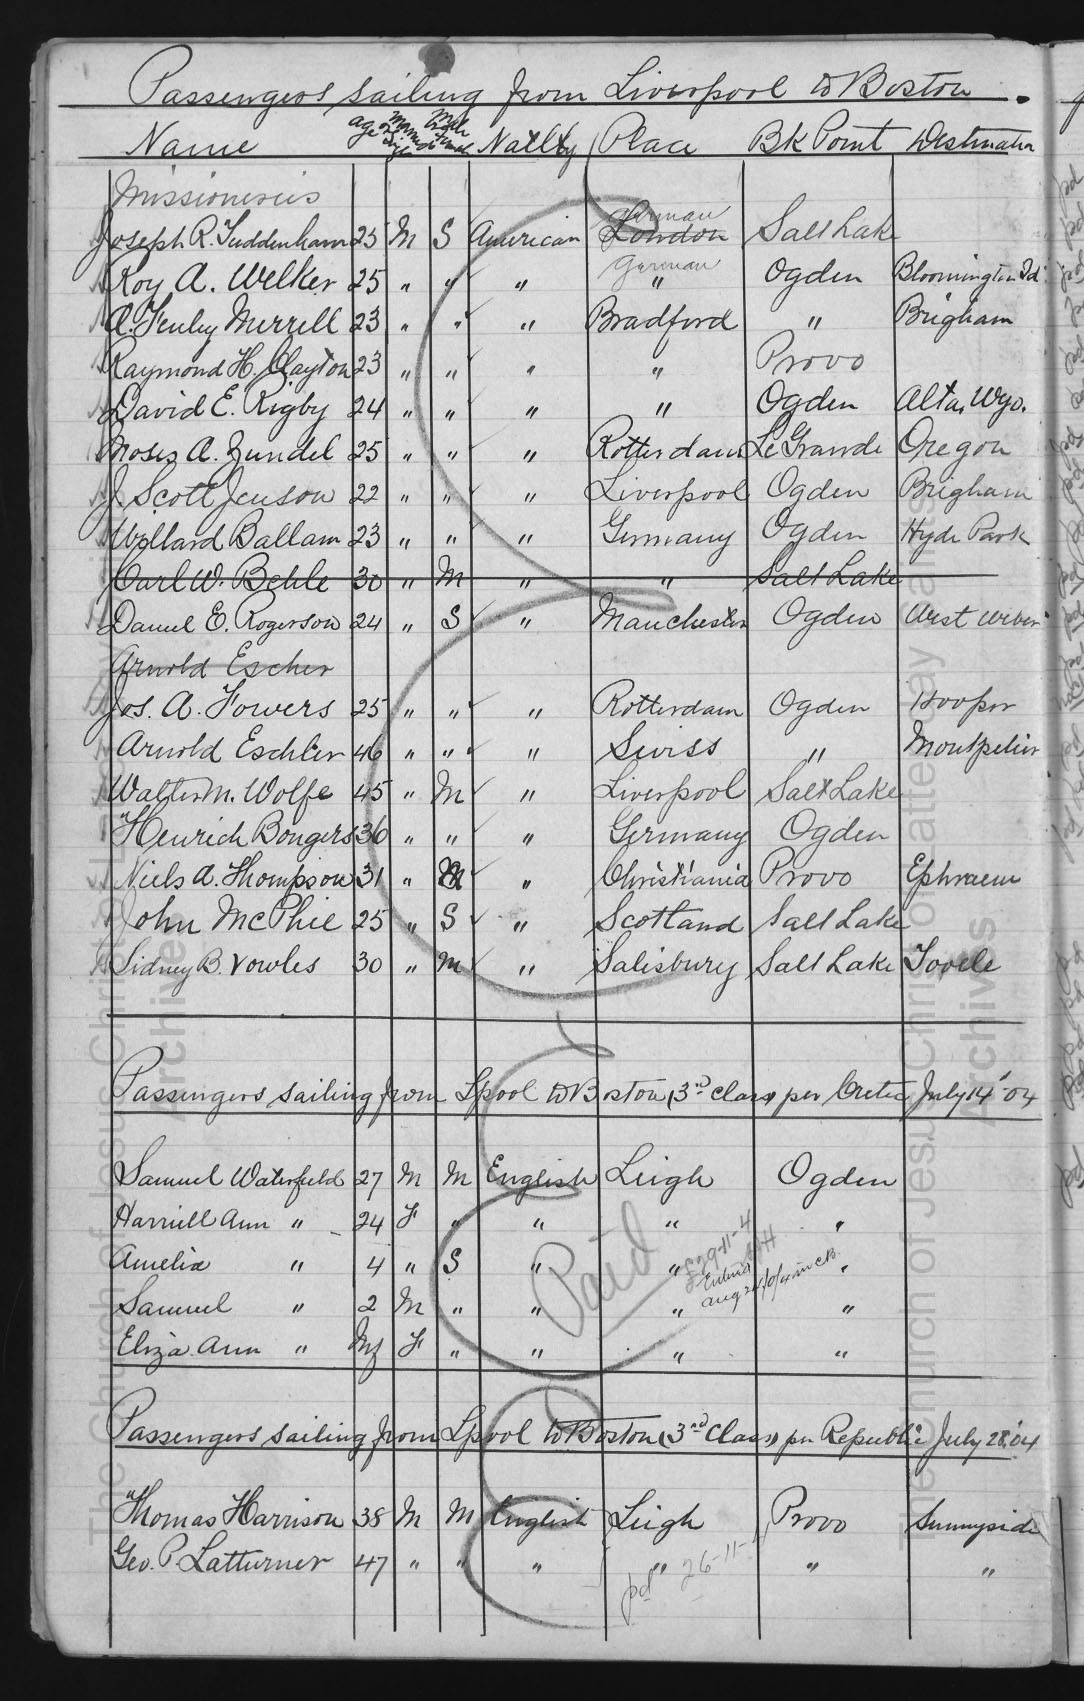 Passengers sailing from Liverpool to Boston.
Name age Natlty Place Bk Point Destination
Missioneries
Joseph R. Tuddenham 25 M S American London German Salt Lake
Roy A. Welker 25 " " " " German Ogden Bloomington Id.
A. Fenley Merrell 23 " " " Bradford " Brigham
Raymond H. Clayton 23 " " " " Provo
David E. Rigby 24 " " " " Ogden Alta, Wyo.
Moses A. Zundel 25 " " " Rotterdam Le Grande Oregon
J. Scott Jenson 22 " " " Liverpool Ogden Brigham
Willard Ballam 23 " " " Germany Ogden Hyde Park
Carl W. Behle 30 " M " " Salt Lake
Daniel E. Rogerson 24 " S " Manchester Ogden West Weber
Arnold Escher
Jos. A. Fowers 25 " " " Rotterdam Ogden Hooper
Arnold Eschler 46 " " " Swiss " Montpelier
Walter M. Wolfe 45 " M " Liverpool Salt Lake
Henrich Bongers 36 " " " Germany Ogden
Niels A. Thompson 31 " M " Christiania Provo Ephraem
John McPhie 25 " S " Scotland Salt Lake
Sidney B. Vowles 30 " M " Salisbury Salt Lake Tooele
Passengers sailing from Lpool to Boston (3rd class) per Cretic July 14 '04
Samuel Waterfield 27 M M English Leigh Ogden
Harriell Ann " 24 F " " " "
Amelia " 4 " S " " "
Samuel " 2 M " " " "
Eliza Ann " Inf F " " " "
Paid £29-11-4
Passengers sailing from Lpool to Boston (3rd Class) per Republic July 28, '04
Thomas Harrison 38 M M English Leigh Provo Sunnyside
Geo. P. Latturner 47 " " " " " "
pd 26-11-
The Church of Jesus Christ of Latter-day Saints
Archives
The Church of Jesus Christ of Latter-day Saints
Archives